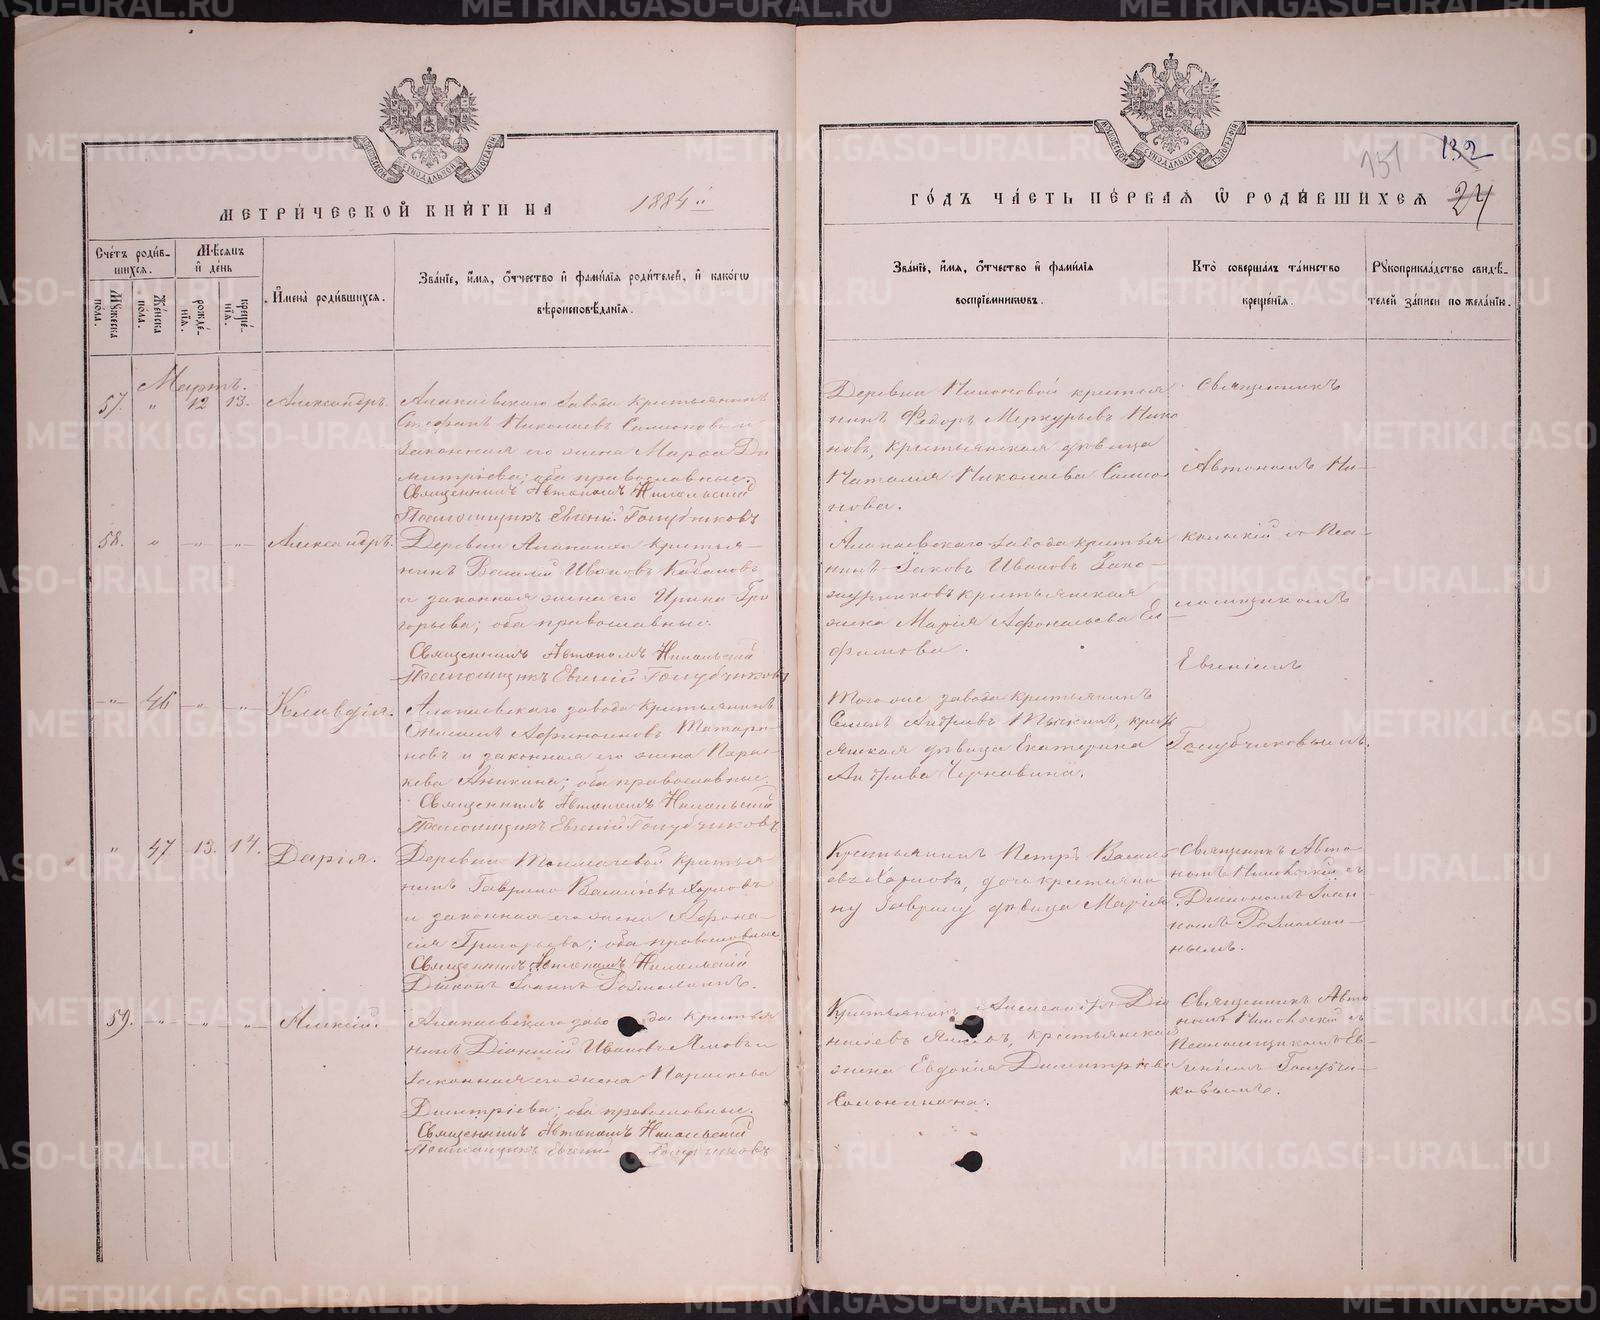 МЕТРИ́ЧЕСКОЙ КНИ́ГИ НА 1884й
ГО́ДЪ ЧА́СТЬ ПЕ́РВАЯ Ѿ РОДИ́ВШИХСЯ
151
132
24
Сче́тъ роди́в-
шихся.
Мѣ́сяцъ
и де́нь
Му́жеска
по́ла.
Же́нска
по́ла.
рожде́-
нїя.
креще́-
нїя.
И҆мена̀ роди́вшихся.
Зва́нїе, и҆́мя, ѻ҆́тчество и҆ фами́лїя роди́телей, и҆ како́гѡ
вѣроисповѣ́данїя.
Зва́нїе, и҆́мя, ѻ҆́тчество и҆ фами́лїя
воспрїе́мникѡвъ.
Кто̀ соверша́лъ та́инство
креще́нїя.
Рꙋкоприкла́дство свидѣ́-
телей за́писи по жела́нїю.
Мартъ.
57. " 12 13. Александръ.
Алапаевскаго завода крестьянинъ
Стефанъ Николаевъ Самоновъ и
законная его жена Марѳа Ди
митріева; оба православные.
Священникъ Автономъ Никольскій
Псаломщикъ Евгеній Голубчиковъ
Деревни крестья
нинъ Ѳедоръ Меркурьевъ
новъ, крестьянская дѣвица
Наталія Николаева Само
нова.
58. " " " Александръ.
Деревни Алапаихи крестья-
нинъ Василій Ивановъ Кабановъ
и законная жена его Ирина Гри
горьева; оба православные.
Священникъ Автономъ Никольскій
Псаломщикъ Евгеній Голубчиковъ
Алапаевскаго завода крестья
нинъ Іаковъ Ивановъ
крестьянская
жена Марія Аѳонасьева Ел
фимова.
Священникъ
Автономъ Ни-
кольскій съ Пса-
ломщикомъ
Евгеніемъ
Голубчиковымъ.
" 46 " " Клавдія.
Алапаевскаго завода крестьянинъ
Онисимъ Татари-
новъ и законная его жена Парас-
кева Аникина; оба православные.
Священникъ Автономъ Никольскій
Псаломщикъ Евгеній Голубчиковъ
Того же завода крестьянинъ
Семенъ Андреевъ крест
янская дѣвица Екатерина
Андреева Чернавина.
" 47 13. 14. Дарія.
Деревни Толмачевой крестья-
нинъ Гаврило Василіевъ Харловъ
и законная его жена Аѳона-
сія Григорьева; оба православные
Священникъ Автономъ Никольскій
Діаконъ Іоаннъ
Крестьянинъ Петръ Василь
евъ Харловъ, дочь крестьяни
ну Гаврилу дѣвица Марія
Священникъ Авто-
номъ Никольскій съ
Діакономъ Іоан-
номъ
нымъ.
59. " " " Алексій.
Алапаевскаго завода крестья
нинъ Діонисій Ивановъ и
законная его жена Параскева
Димитріева; оба православные.
Священникъ Автономъ Никольскій
Псаломщикъ Евгеній Голубчиковъ
Крестьянинъ Александръ Діо
нисіевъ крестьянская
жена Евдокія Димитріева
Священникъ Авто
номъ Никольскій съ
Псаломщикомъ Ев-
геніемъ Голубчи-
ковымъ.
METRIKI.GASO-URAL.RU